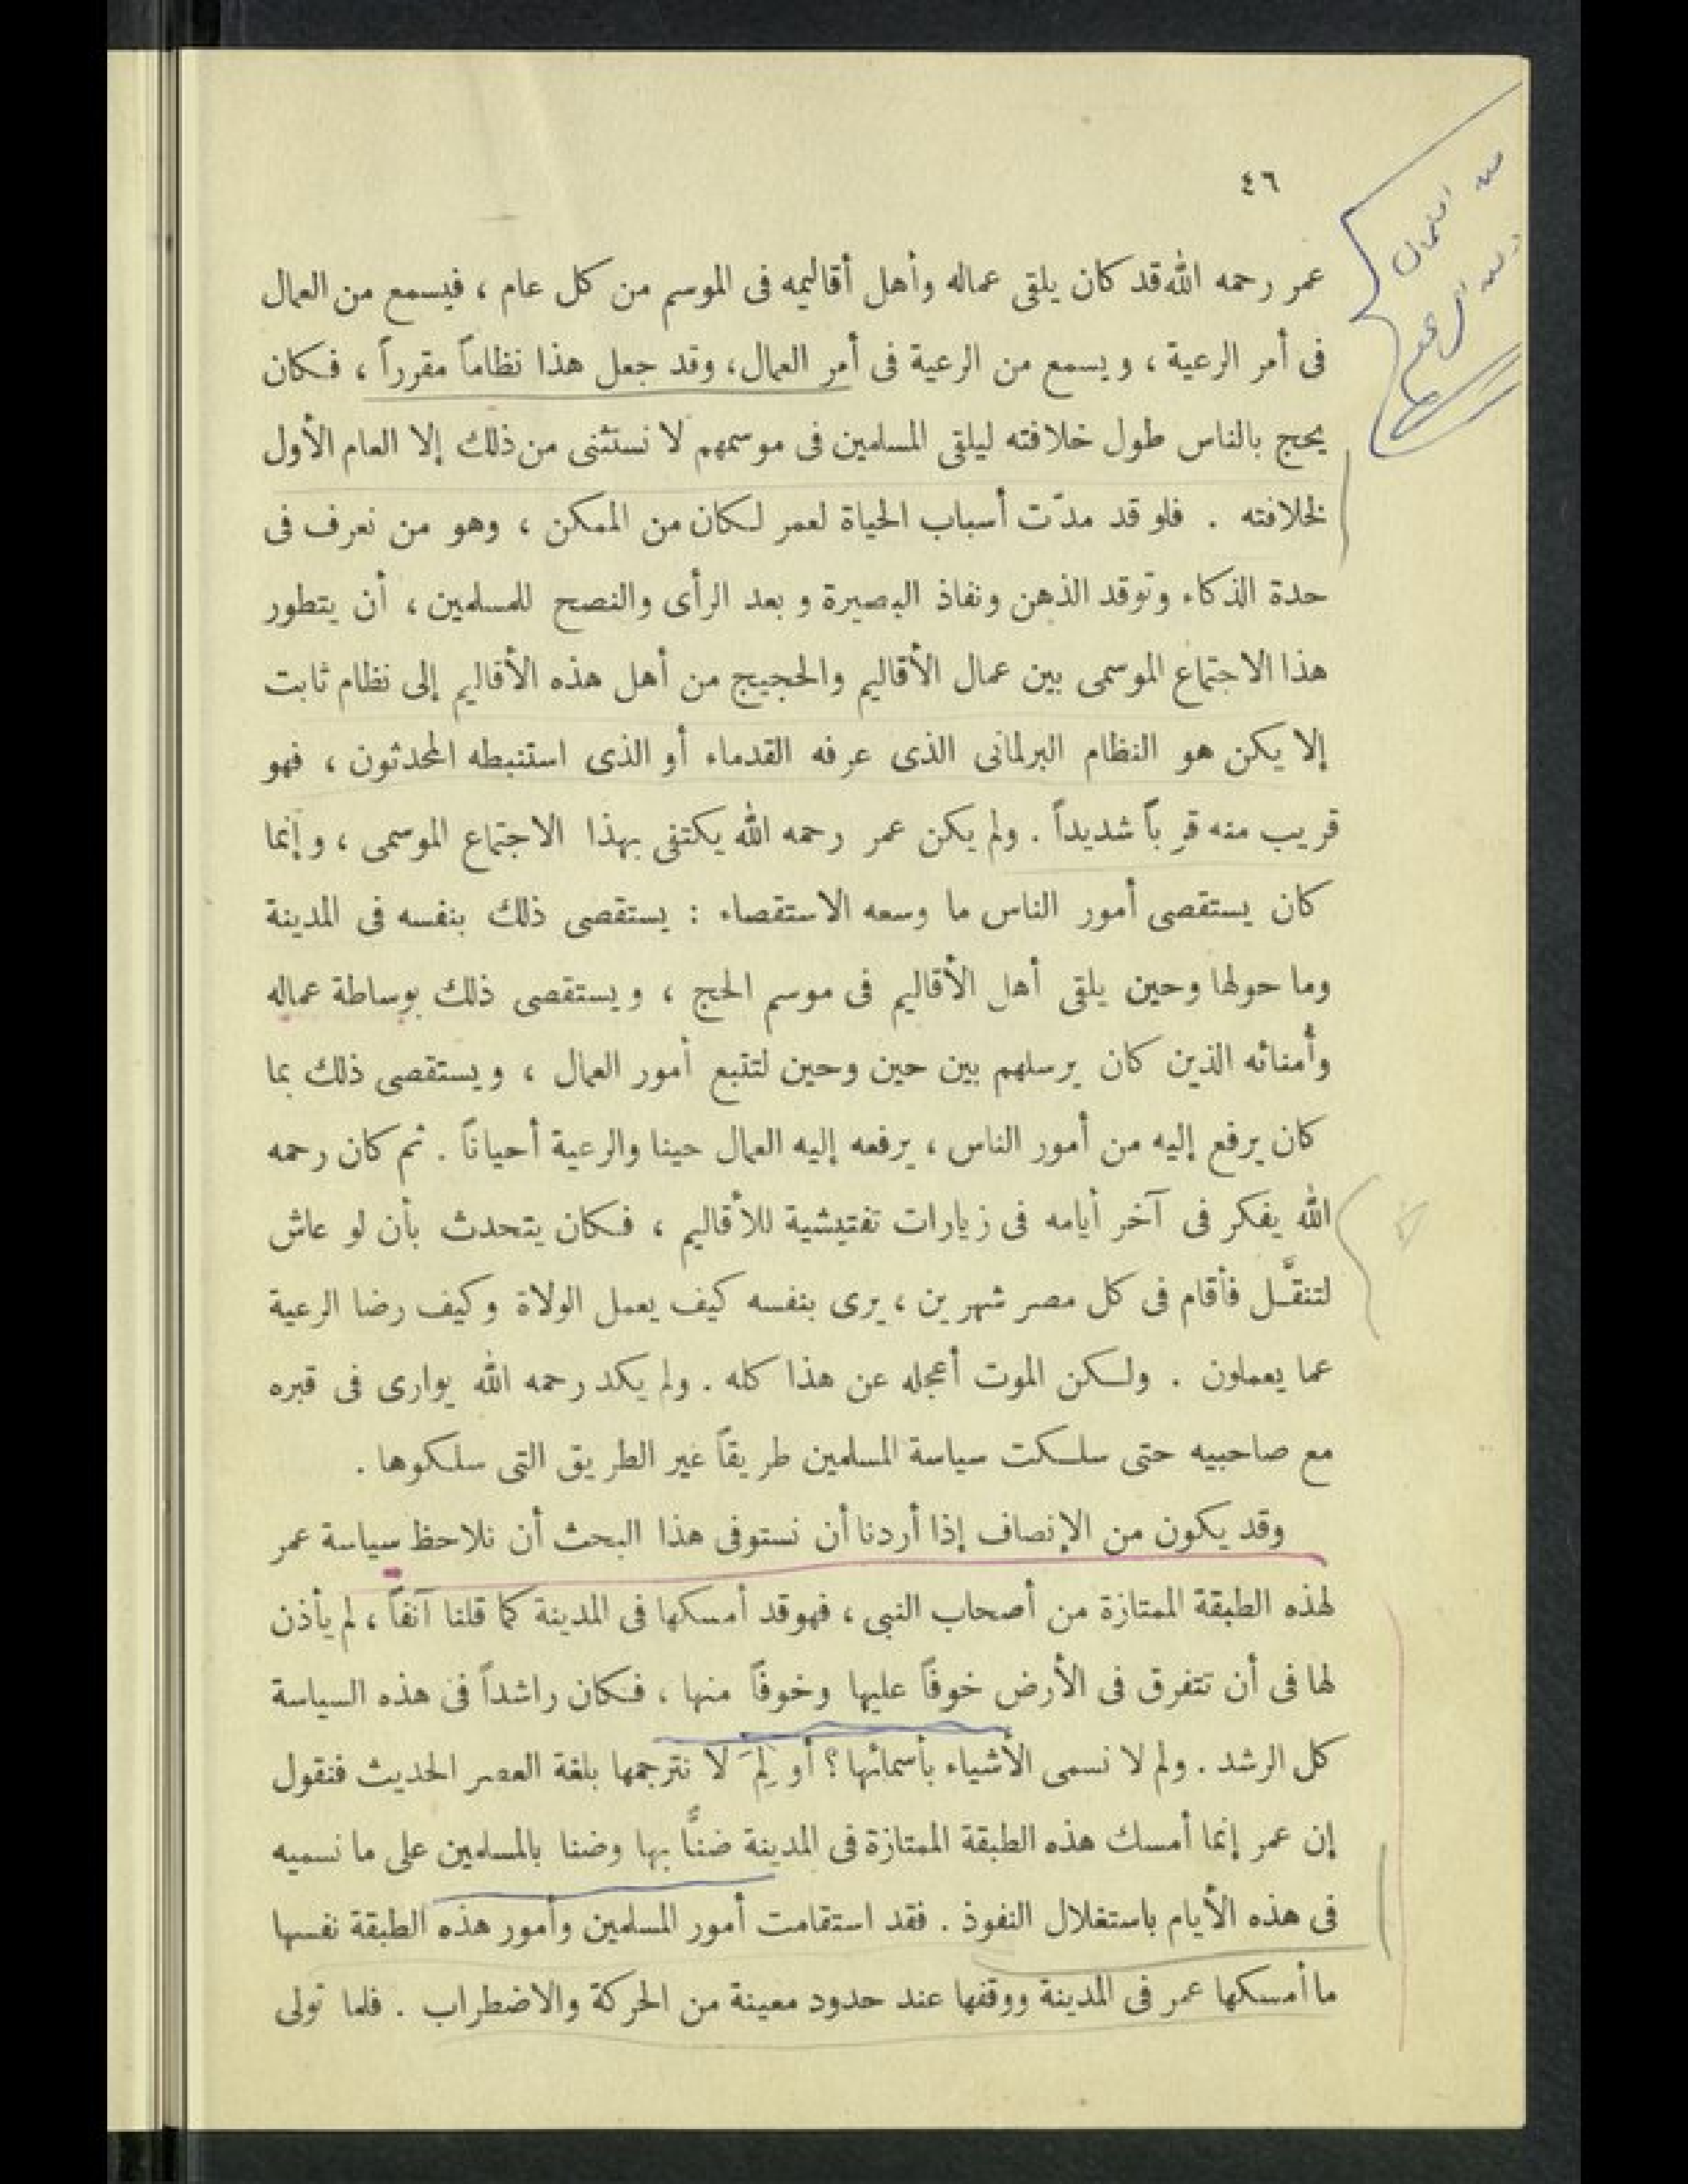 ٤٦
عمر رحمه الله قد كان يلقى عماله وأهل أقاليمه فى الموسم من كل عام ، فيسمع من العمال
فى أمر الرعية ، ويسمع من الرعية فى أمر العمال، وقد جعل هذا نظاماً مقرراً ، فكان
يحج بالناس طول خلافته ليلقى المسلمين فى موسمهم لا نستثنى من ذلك إلا العام الأول
لخلافته . فلو قد مدّت أسباب الحياة لعمر لكان من الممكن ، وهو من نعرف فى
حدة الذكاء وتوقد الذهن ونفاذ البصيرة وبعد الرأى والنصح للمسلمين ، أن يتطور
هذا الاجتماع الموسمى بين عمال الأقاليم والحجيج من أهل هذه الأقاليم إلى نظام ثابت
إلا يكن هو النظام البرلمانى الذى عرفه القدماء أو الذى استنبطه المحدثون ، فهو
قريب منه قرباً شديداً . ولم يكن عمر رحمه الله يكتفى بهذا الاجتماع الموسمى ، وإنما
كان يستقصى أمور الناس ما وسعه الاستقصاء : يستقصى ذلك بنفسه فى المدينة
وما حولها وحين يلقى أهل الأقاليم فى موسم الحج ، ويستقصى ذلك بوساطة عماله
وأُمنائه الذين كان يرسلهم بين حين وحين لتتبع أمور العمال ، ويستقصى ذلك بما
كان يرفع إليه من أمور الناس ، يرفعه إليه العمال حينا والرعية أحياناً . ثم كان رحمه
الله يفكر فى آخر أيامه فى زيارات تفتيشية للأقاليم ، فكان يتحدث بأن لو عاش
لتنقَّل فأقام فى كل مصر شهرين ، يرى بنفسه كيف يعمل الولاة وكيف رضا الرعية
عما يعملون . ولكن الموت أعجله عن هذا كله . ولم يكد رحمه الله يوارى فى قبره
مع صاحبيه حتى سلكت سياسة المسلمين طريقاً غير الطريق التى سلكوها .
وقد يكون من الإنصاف إذا أردنا أن نستوفى هذا البحث أن نلاحظ سياسة عمر
لهذه الطبقة الممتازة من أصحاب النبى ، فهو قد أمسكها فى المدينة كما قلنا آنفاً ، لم يأذن
لها فى أن تتفرق فى الأرض خوفاً عليها وخوفاً منها ، فكان راشداً فى هذه السياسة
كل الرشد . ولم لا نسمى الأشياء بأسمائها ؟ أو لِمَ لا نترجمها بلغة العصر الحديث فنقول
إن عمر إنما أمسك هذه الطبقة الممتازة فى المدينة ضنًّا بها وضنا بالمسلمين على ما نسميه
فى هذه الأيام باستغلال النفوذ . فقد استقامت أمور المسلمين وأمور هذه الطبقة نفسها
ما أمسكها عمر فى المدينة ووقفها عند حدود معينة من الحركة والاضطراب . فلما تولى